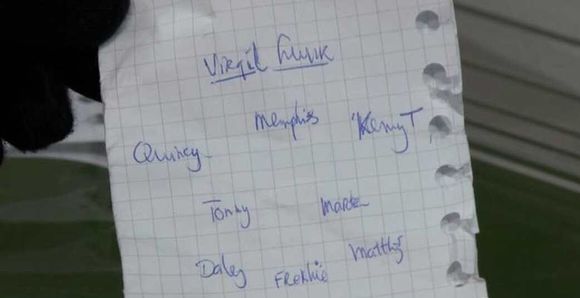 Virgil Luuk
Memphis Kenny T
Quincy
Tonny Marten
Daley Frenkie Matthijs